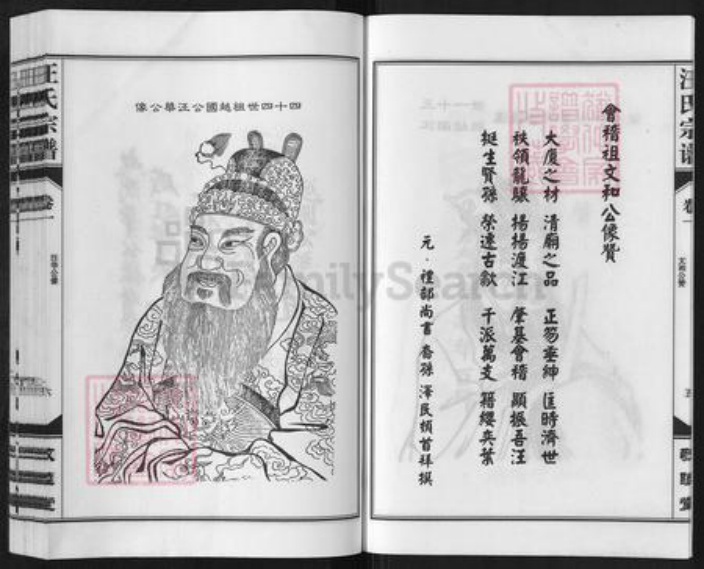 會稽祖文和公像贊
大廈之材 清廟之品 正笏垂紳 匡時濟世
秩領龍驤 揚揚渡江 肇基會稽 顯振吾汪
挺生賢孫 榮遠古歙 千派萬支 籍纓奕葉
元·禮部尚書 裔孫 澤民頓首拜撰
汪氏宗譜
卷一
文和公贊
五
四十四世祖越國公汪華公像
汪氏宗譜
卷一
汪華公像
六
FamilySearch